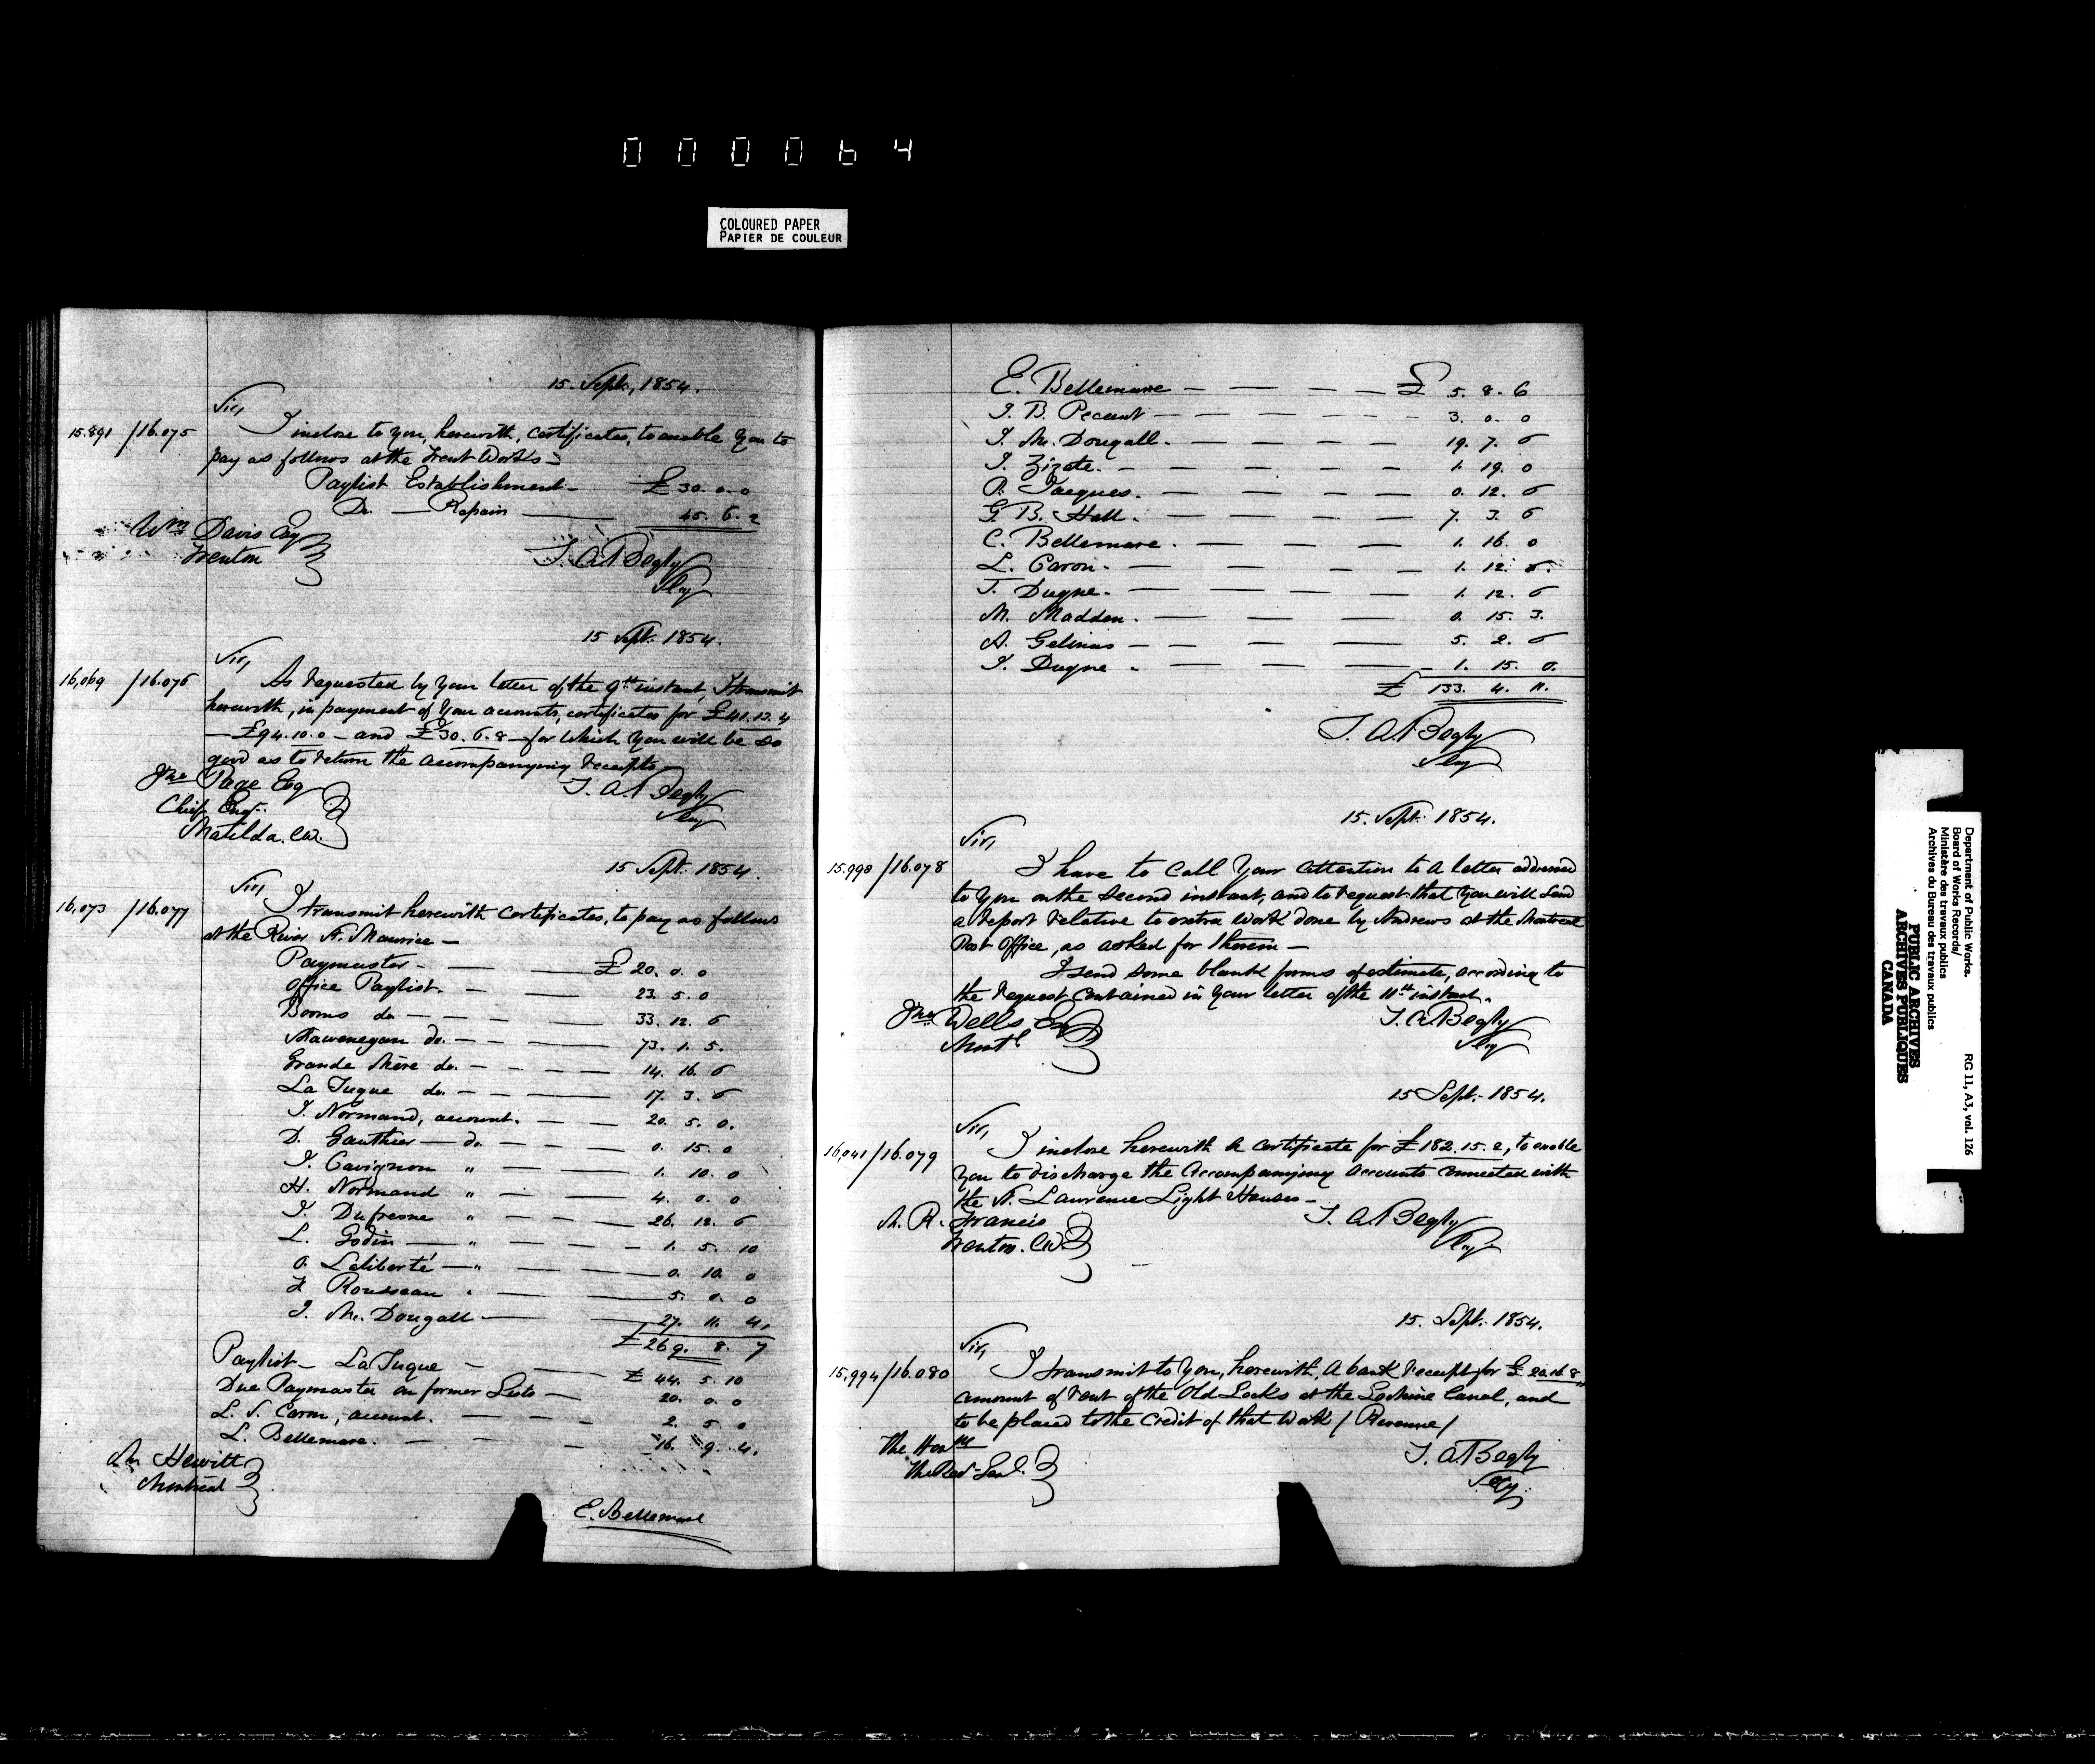 000064
COLOURED PAPER
PAPIER DE COULEUR
15. Sept., 1854.
Sir,
15.891 /16.075 I inclose to you, herewith, certificates, to enable you to
pay as follows at the Trent Works:-
Paylist Establishment - £ 30. 0. 0
Do. — Repairs — 45. 6. 2
Wm Davis Esq
Trenton
T. A. Begly
Secy
15 Sept. 1854.
Sir,
16,069 /16.076 As requested by your letter of the 9th instant, I transmit
herewith, in payment of your accounts, certificates for £41.13.4
— £94.10.0 — and £30.6.8 — for which you will be so
good as to return the accompanying receipts —
Jno Page Esq
Chief Engr.
Matilda. CW.
T. A. Begly
Secy
15 Sept. 1854.
Sir,
16,073 /16.077 I transmit herewith certificates, to pay as follows
at the River St. Maurice —
Paymaster - — £ 20. 0. 0
Office Paylist. - — 23. 5. 0
Booms do — 33. 12. 6
Shawenegan do. — 73. 1. 5.
Grande Mère do. — 14. 16. 6
La Tuque do. — 17. 3. 6
I. Normand, account. — 20. 5. 0.
D. Gauthier — do. — 0. 15. 0
I. Cavignon " — 1. 10. 0
H. Normand " — 4. 0. 0
I. Dufresne " — 26. 12. 6
L. Godin — " — 1. 5. 10
O. Laliberté — " — 0. 10. 0
Rousseau " — 5. 0. 0
I. Mc. Dougall — 27. 11. 4.
£ 269. 8. 7
Paylist — La Tuque — £ 44. 5. 10
Due Paymaster on former Lists — 20. 0. 0
L. S. Caron, account. — 2. 5. 0
L. Bellemare. — 16. 9. 4.
Hewitt
Montreal
E. Bellemare
E. Bellemare — £ 5. 8. 6
J. B. Pecaut — 3. 0. 0
I. Mc. Dougall. — 19. 7. 6
I. Zizate. — 1. 19. 0
P. Jacques. — 0. 12. 6
G. B. Hall. — 7. 3. 6
C. Bellemare. — 1. 16. 0
L. Caron. — 1. 12. 6.
T. Dugne. — 1. 12. 6
M. Madden. — 0. 15. 3.
A. Gelinas — 5. 2. 6
I. Dugne — 1. 15. 0.
£ 133. 4. 11.
T. A. Begly
Secy
15. Sept. 1854.
Sir,
15.998 /16.078 I have to call your attention to a letter addressed
to you on the second instant, and to request that you will send
a report relative to extra work done by Andrews at the Montreal
Post Office, as asked for therein —
I send some blank forms of estimate, according to
the request contained in your letter of the 11th instant.
Jno. Wells Esq
Montl
T. A. Begly
Secy
15 Sept. 1854.
Sir,
16,041 /16.079 I inclose herewith a certificate for £182.15.2, to enable
you to discharge the accompanying accounts connected with
the St. Lawrence Light Houses —
M. R. Francis
Trenton. CW.
T. A. Begly
Secy
15. Sept. 1854.
Sir,
15,994 /16.080 I transmit to you, herewith, a bank receipt for £20.16.8
amount of rent of the Old Locks at the Lachine Canal, and
to be placed to the credit of that Work / Revenue /
The Honble
The Recr. Genl.
T. A. Begly
Secy.
Department of Public Works. RG 11, A3, vol. 126
Board of Works Records/
Ministère des travaux publics
Archives du Bureau des travaux publics
PUBLIC ARCHIVES
ARCHIVES PUBLIQUES
CANADA